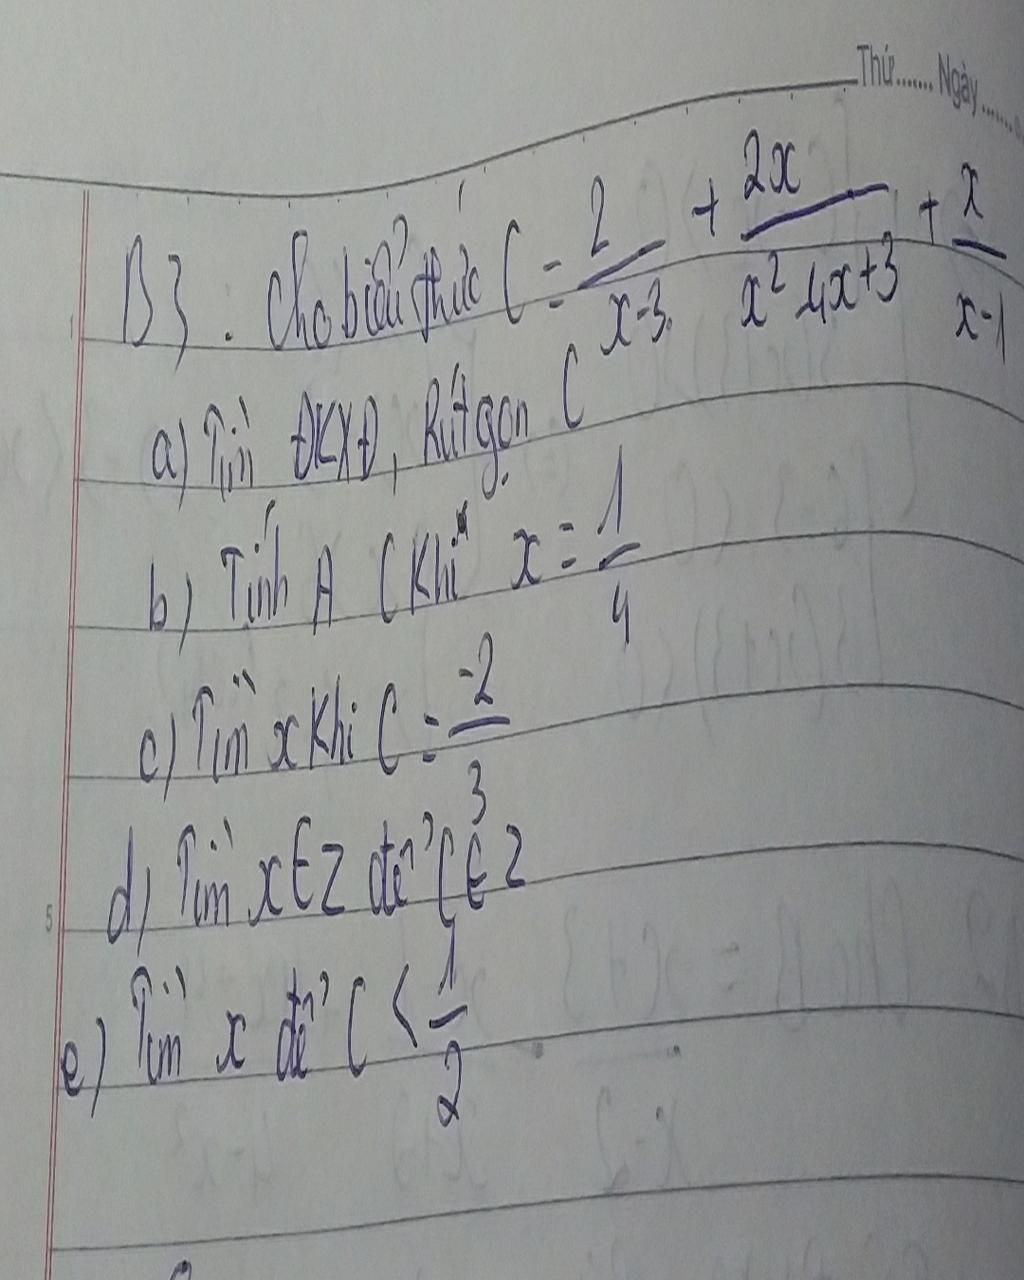 Thứ....... Ngày.......
B3. Cho biểu thức C = 2/(x-3) + 2x/(x² - 4x + 3) + x/(x-1)
a) Tìm ĐKXĐ, Rút gọn C
b) Tính A C Khi x = 1/4
c) Tìm x Khi C = -2/3
d) Tìm x ∈ Z để C ∈ Z
5
e) Tìm x để C < 1/2